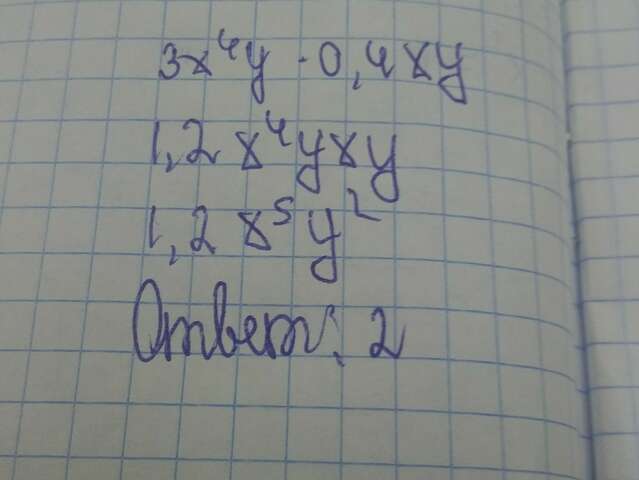 3x⁴y · 0,4xy
1,2 x⁴yxy
1,2 x⁵y²
Ответ: 2